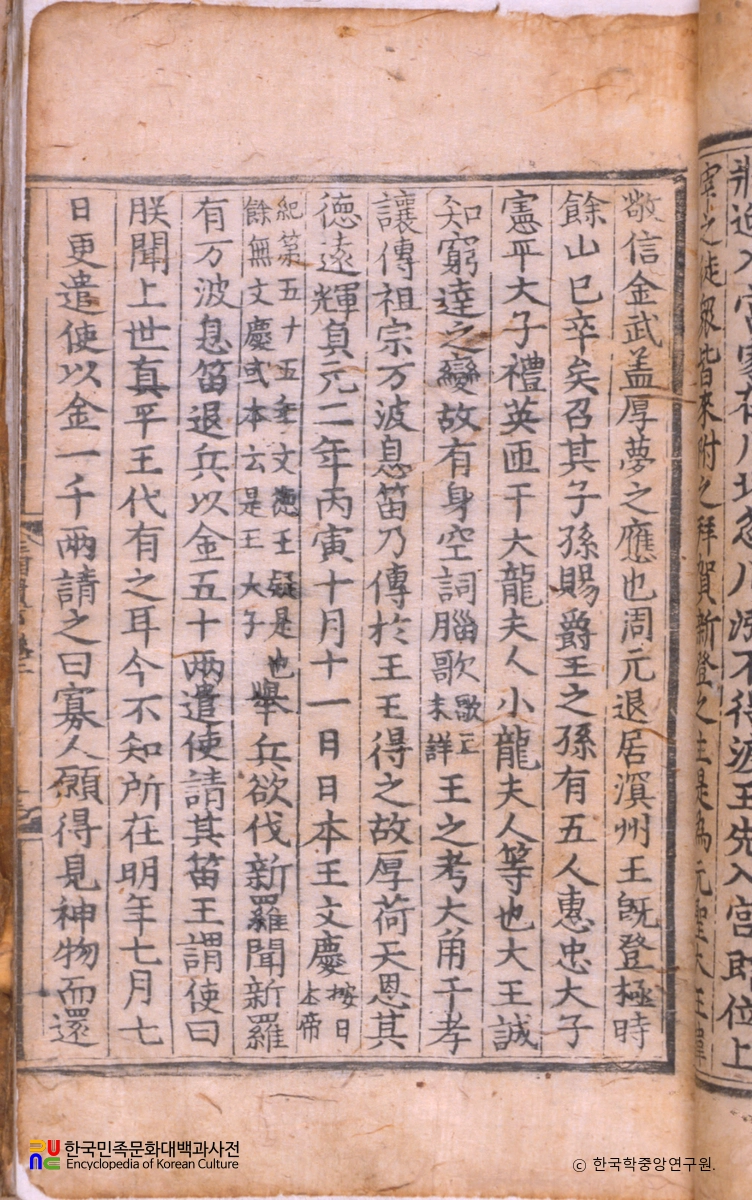 迎入宮家在川北忽川漲不得渡王先入宮即位上
宰之徒衆皆來附之拜賀新登之主是爲元聖大王諱
敬信金武盖厚夢之應也周元退居溟州王既登極時
餘山已卒矣召其子孫賜爵王之孫有五人惠忠大子
憲平大子禮英匝干大龍夫人小龍夫人等也大王誠
知窮達之變故有身空詞腦歌歌亡未詳王之考大角干孝
讓傳祖宗万波息笛乃傳於王王得之故厚荷天恩其
德遠輝貞元二年丙寅十月十一日日本王文慶按日本帝
紀第五十五年文德王疑是也餘無文慶或本云是王大子舉兵欲伐新羅聞新羅
有万波息笛退兵以金五十兩遣使請其笛王謂使曰
朕聞上世真平王代有之耳今不知所在明年七月七
日更遣使以金一千兩請之曰寡人願得見神物而還
한국민족문화대백과사전
Encyclopedia of Korean Culture
© 한국학중앙연구원.